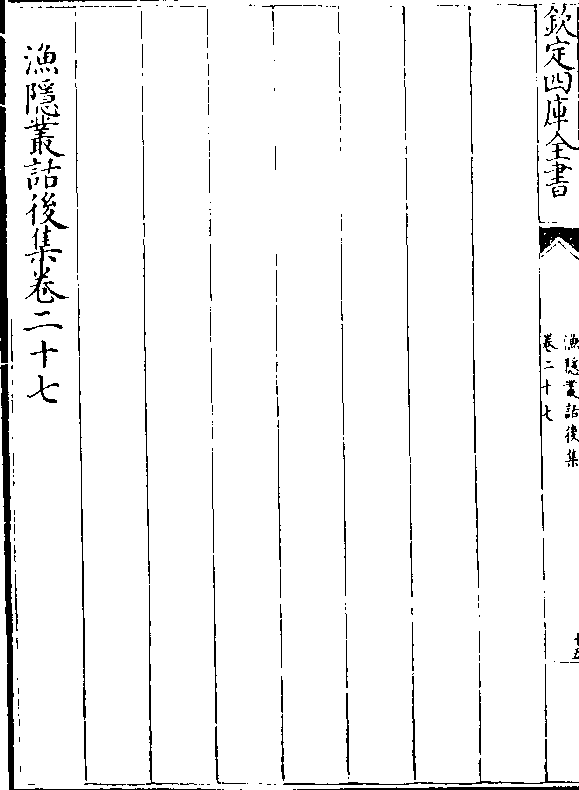 欽定四庫全書
漁隱叢話後集
卷二十七
十五
漁隱叢話後集卷二十七